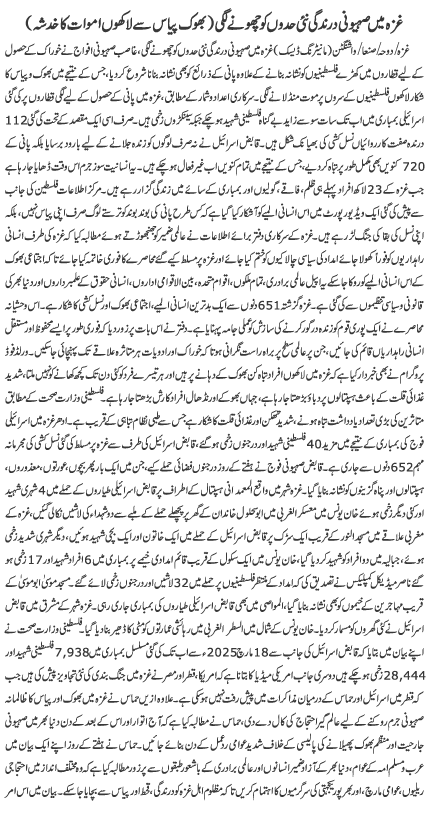 غزہ میں صہیونی درندگی نئی حدوں کو چھونے لگی (بھوک پیاس سے لاکھوں اموات کا خدشہ)
غزہ/دوحہ/صنعا/واشنگٹن (مانیٹرنگ ڈیسک) غزہ میں صہیونی درندگی نئی حدوں کو چھونے لگی، غاصب صہیونی افواج نے خوراک کے حصول
کے لیے قطاروں میں کھڑے فلسطینیوں کو نشانہ بنانے کے علاوہ پانی کے ذرائع کو بھی نشانہ بنانا شروع کر دیا، جس کے نتیجے میں بھوک و پیاس کا
شکار لاکھوں فلسطینیوں کے سروں پر موت منڈلانے لگی۔ سرکاری اعداد و شمار کے مطابق، غزہ میں پانی کے حصول کے لیے لگی قطاروں پر کی گئی
اسرائیلی بمباری میں اب تک سات سو سے زائد بے گناہ فلسطینی شہید ہو چکے جبکہ سینکڑوں زخمی ہیں۔ صرف اسی ایک مقصد کے تحت کی گئی 112
درندہ صفت کارروائیاں نسل کشی کی بھیانک شکل ہیں۔ قابض اسرائیل نے نہ صرف لوگوں کو زندہ جلانے کے لیے بارود برسایا بلکہ پانی کے
720 کنویں بھی مکمل طور پر تباہ کر دیے، جس کے نتیجے میں تمام کنویں اب غیر فعال ہو چکے ہیں۔ یہ انسانیت سوز جرم اس وقت ڈھایا جا رہا ہے
جب غزہ کے 23 لاکھ افراد پہلے ہی ظلم، فاقے، گولیوں اور بمباری کے سائے میں زندگی گزار رہے ہیں۔ مرکز اطلاعات فلسطین کی جانب
سے پیش کی گئی ایک ویڈیو رپورٹ میں اس انسانی المیے کو آشکار کیا گیا ہے کہ کس طرح پانی کی بوند بوند کو ترستے لوگ صرف اپنی پیاس نہیں، بلکہ
اپنی نسل کی بقا کی جنگ لڑ رہے ہیں۔ غزہ کے سرکاری دفتر برائے اطلاعات نے عالمی ضمیر کو جھنجھوڑتے ہوئے مطالبہ کیا کہ غزہ کی طرف انسانی
راہداریوں کو فوراً کھولا جائے اور غزہ پر مسلط کیے گئے محاصرے کا فوری خاتمہ کیا جائے تاکہ اجتماعی بھوک
اور اس انسانی المیے کو روکا جا سکے۔ یہ اپیل عالمی برادری، تمام ملکوں، اقوام متحدہ، بین الاقوامی اداروں، انسانی حقوق کے علمبرداروں اور دنیا بھر کی
قانونی و سیاسی تنظیموں سے کی گئی ہے۔ غزہ گزشتہ 651 دنوں سے ایک بدترین انسانی المیے، اجتماعی بھوک اور نسل کشی کا شکار ہے۔ اس وحشیانہ
محاصرے نے ایک پوری قوم کو زندہ درگور کرنے کی سازش کو عملی جامہ پہنایا ہے۔ دفتر نے اس بات پر زور دیا کہ فوری طور پر ایسے محفوظ اور مستقل
انسانی راہداریاں قائم کی جائیں، جن پر عالمی سطح پر براہ راست نگرانی ہو تاکہ خوراک اور ادویات ہر متاثرہ علاقے تک پہنچائی جا سکیں۔ ورلڈ فوڈ
پروگرام نے بھی خبردار کیا ہے کہ غزہ میں لاکھوں افراد تباہ کن بھوک کے دہانے پر ہیں اور ہر تیسرے فرد کو کئی دن تک کچھ کھانے کو نہیں ملتا۔ شدید
غذائی قلت کے باعث ہسپتالوں پر دباؤ بڑھتا جا رہا ہے، جہاں بھوکے اور نڈھال افراد کا رش بڑھتا جا رہا ہے۔ فلسطینی وزارت صحت کے مطابق
متاثرین کی بڑی تعداد یادداشت تباہ ہونے، شدید تھکن اور غذائی قلت کا شکار ہے جس سے طبی نظام تباہی کے قریب ہے۔ ادھر غزہ میں اسرائیلی
فوج کی بمباری کے نتیجے میں مزید 40 فلسطینی شہید اور درجنوں زخمی ہو گئے، قابض اسرائیل کی طرف سے غزہ پر مسلط کی گئی نسل کشی کی مجرمانہ
مہم 652 دنوں سے جاری ہے۔ قابض صہیونی فوج نے ہفتے کے روز درجنوں فضائی حملے کیے، جن میں ایک بار پھر بچوں، عورتوں، معذوروں،
ہسپتالوں اور پناہ گزینوں کو نشانہ بنایا گیا۔ غزہ شہر میں واقع المعمدانی ہسپتال کے اطراف پر قابض اسرائیلی طیاروں کے حملے میں 4 شہری شہید
اور کئی دیگر زخمی ہوئے خان یونس میں معسکر الغربی میں ابو طحلوح خاندان کے گھر پر پچھلے حملے کے ملبے سے دو شہداء کی لاشیں نکالی گئیں، غزہ کے
مغربی علاقے میں مسجد النور کے قریب ایک سڑک پر قابض اسرائیل کے حملے میں ایک خاتون اور ایک بچی شہید ہوئیں، دیگر شہری شدید زخمی
ہوئے، جبالیہ میں دو افراد کو شہید کر دیا گیا، خان یونس میں ایک سکول کے قریب قائم امدادی خیمے پر بمباری میں 6 افراد شہید اور 17 زخمی ہو
گئے ناصر میڈیکل کمپلیکس نے تصدیق کی کہ امداد کے منتظر فلسطینیوں پر حملے میں 32 لاشیں اور درجنوں زخمی لائے گئے۔ مسجد مؤتی ابو موسیٰ کے
قریب مہاجرین کے خیموں کو بھی نشانہ بنایا گیا، المواصی میں بھی قابض اسرائیلی طیاروں کی بمباری جاری رہی۔ غزہ شہر کے مشرق میں قابض
اسرائیل نے کئی گھروں کو مسمار کر دیا۔ خان یونس کے شمال میں السطر الغربی میں رہائشی عمارتوں کو مٹی کا ڈھیر بنا دیا گیا۔ فلسطینی وزارت صحت نے
اپنے بیان میں بتایا کہ قابض اسرائیل کی جانب سے 18 مارچ 2025ء سے اب تک کی گئی مسلسل بمباری میں 7,938 فلسطینی شہید اور
28,444 زخمی ہو چکے ہیں دوسری جانب امریکی میڈیا کا بتانا ہے کہ امریکا، قطر اور مصر نے غزہ میں جنگ بندی کی نئی تجاویز پیش کی ہیں جب کہ
قطر میں اسرائیل اور حماس کے درمیان مذاکرات میں پیش رفت نہیں ہو سکی ہے۔ علاوہ ازیں حماس نے غزہ میں بھوک اور پیاس کا ظالمانہ
صہیونی جرم روکنے کے لیے عالمگیر احتجاج کی کال دے دی، حماس نے مطالبہ کیا ہے کہ آج اتوار اور اس کے بعد کے دن دنیا بھر میں صہیونی
جارحیت اور منظم بھوک پھیلانے کی پالیسی کے خلاف شدید عوامی ردعمل کے دن بنائے جائیں۔ حماس نے ہفتے کے روز اپنے ایک بیان میں
عرب و مسلم امہ کے عوام، دنیا بھر کے آزاد ضمیر انسانوں اور عالمی برادری کے باشعور طبقوں سے پر زور مطالبہ کیا ہے کہ وہ مختلف انداز میں احتجاجی
ریلیوں، عوامی مارچ، اور بھرپور یکجہتی کی سرگرمیوں کا اہتمام کریں تاکہ مظلوم اہل غزہ کو درندگی، قحط اور پیاس سے بچایا جا سکے۔ بیان میں اس امر